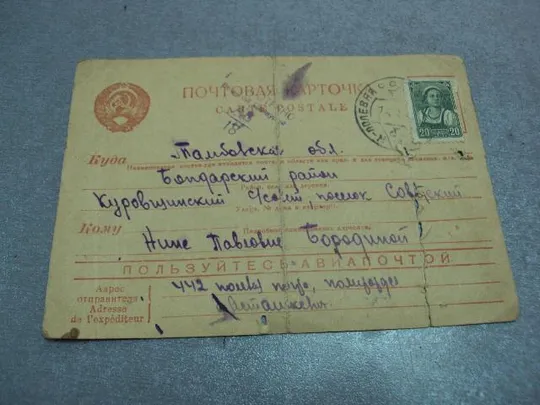 ПОЧТОВАЯ КАРТОЧКА
CARTE POSTALE
ПОЛЕВАЯ
20 20
18
Куда Тамбовская обл.
Бондарский район
Куровщинский с/совет поселок Советский
Кому
Нине Павловне Бородиной!
ПОЛЬЗУЙТЕСЬ АВИАПОЧТОЙ
Адрес
отправителя
Adresse
de l'expéditeur
442 полевая почта,